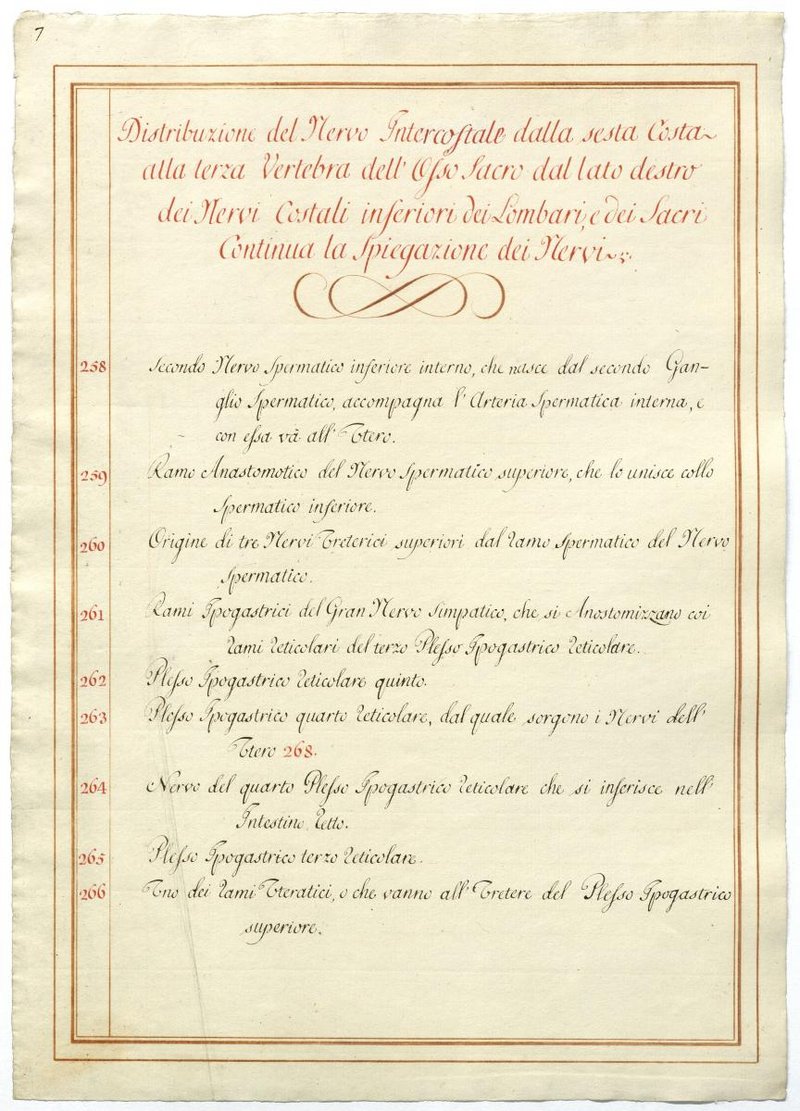 7
Distribuzione del Nervo Intercostale dalla sesta Costa
alla terza Vertebra dell' Osso Sacro dal lato destro
dei Nervi Costali inferiori dei Lombari, e dei Sacri
Continua la Spiegazione dei Nervi
258 Secondo Nervo Spermatico inferiore interno, che nasce dal secondo Gan-
glio Spermatico, accompagna l' Arteria Spermatica interna, e
con essa và all' Utero.
259 Ramo Anastomotico del Nervo Spermatico superiore, che lo unisce collo
Spermatico inferiore.
260 Origine di tre Nervi Ureterici superiori dal ramo Spermatico del Nervo
Spermatico.
261 Rami Ipogastrici del Gran Nervo Simpatico, che si Anostomizzano coi
rami reticolari del terzo Plesso Ipogastrico reticolare.
262 Plesso Ipogastrico reticolare quinto.
263 Plesso Ipogastrico quarto reticolare, dal quale sorgono i Nervi dell'
Utero 268.
264 Nervo del quarto Plesso Ipogastrico reticolare che si inserisce nell'
Intestino retto.
265 Plesso Ipogastrico terzo reticolare.
266 Uno dei rami Uteratici, o che vanno all' Uretere del Plesso Ipogastrico
superiore.